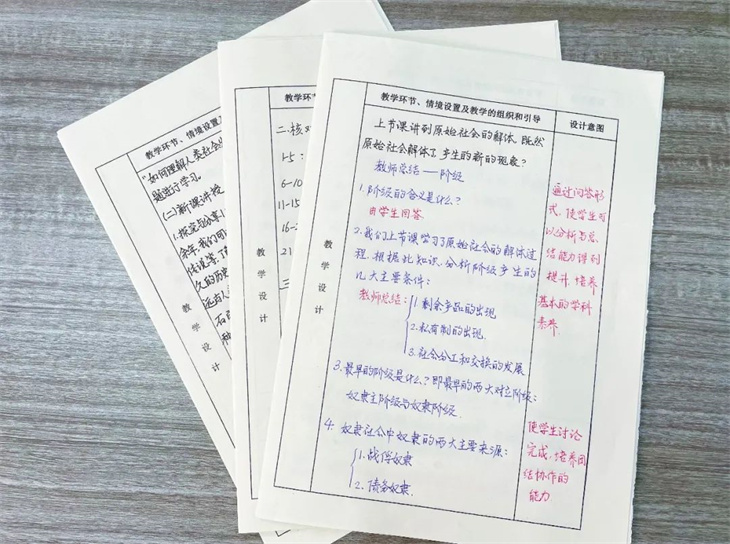 教学环节、情境设置及
"如何理解人类社会
题进行学习。
(二)新课讲授
1.探究与分享
余年,我们可
传说等,了
久的历史
远古人
石
教学设计
教学环节
二.核
1-5:
6-10
11-15
16-2
21
三
教学设计
教学环节、情境设置及教学的组织和引导
设计意图
上节课讲到原始社会的解体,既然
原始社会解体了,产生的新的现象?
教师总结——阶级
1.阶级的含义是什么?
由学生回答.
2.我们上节课学习了原始社会的解体过
程,根据此知识,分析阶级产生的
几大主要条件:
教师总结:
1.剩余产品的出现
2.私有制的出现
3.社会分工和交换的发展
3.最早的阶级是什么?即最早的两大对立阶级:
奴隶主阶级与奴隶阶级.
4.奴隶社会中奴隶的两大主要来源:
1.战俘奴隶
2.债务奴隶.
教学设计
通过问答形
式,使学生可
以分析与总
结能力得到
提升,培养
基本的学科
素养.
使学生讨论
完成,培养团
结协作的
能力